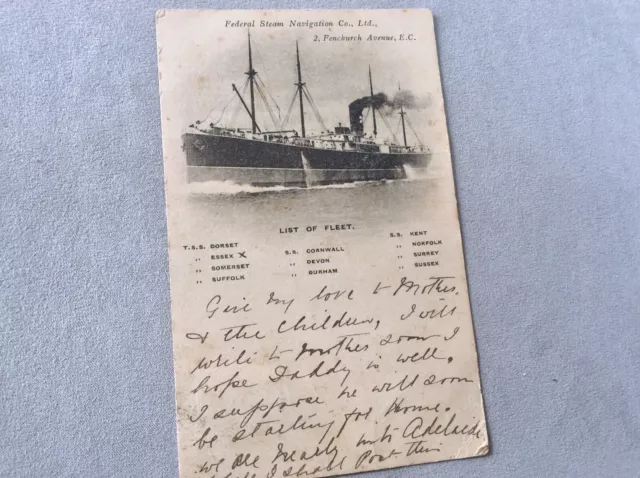 Federal Steam Navigation Co., Ltd.,
2, Fenchurch Avenue, E.C.
LIST OF FLEET.
T.S.S. DORSET
" ESSEX X
" SOMERSET
" SUFFOLK
S.S. CORNWALL
" DEVON
" DURHAM
S.S. KENT
" NORFOLK
" SURREY
" SUSSEX
Give my love to Mother.
& the Children, I will
write to Mother soon I
hope Daddy is well,
I suppose he will soon
be starting for Home.
we are nearly into Adelaide
I shall Post this